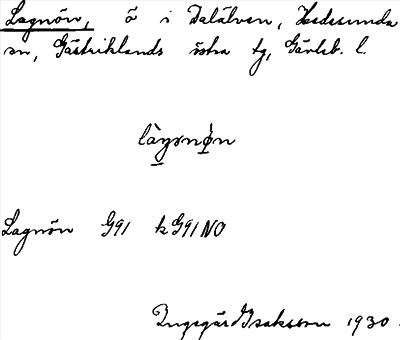 Lagnön, ö i Dalälven, Hedesunda
sn, Gästriklands östra tg, Gävleb. l.
làgsnøn
Lagnön G91 k G91 NO
Ingegärd Isaksson 1930.